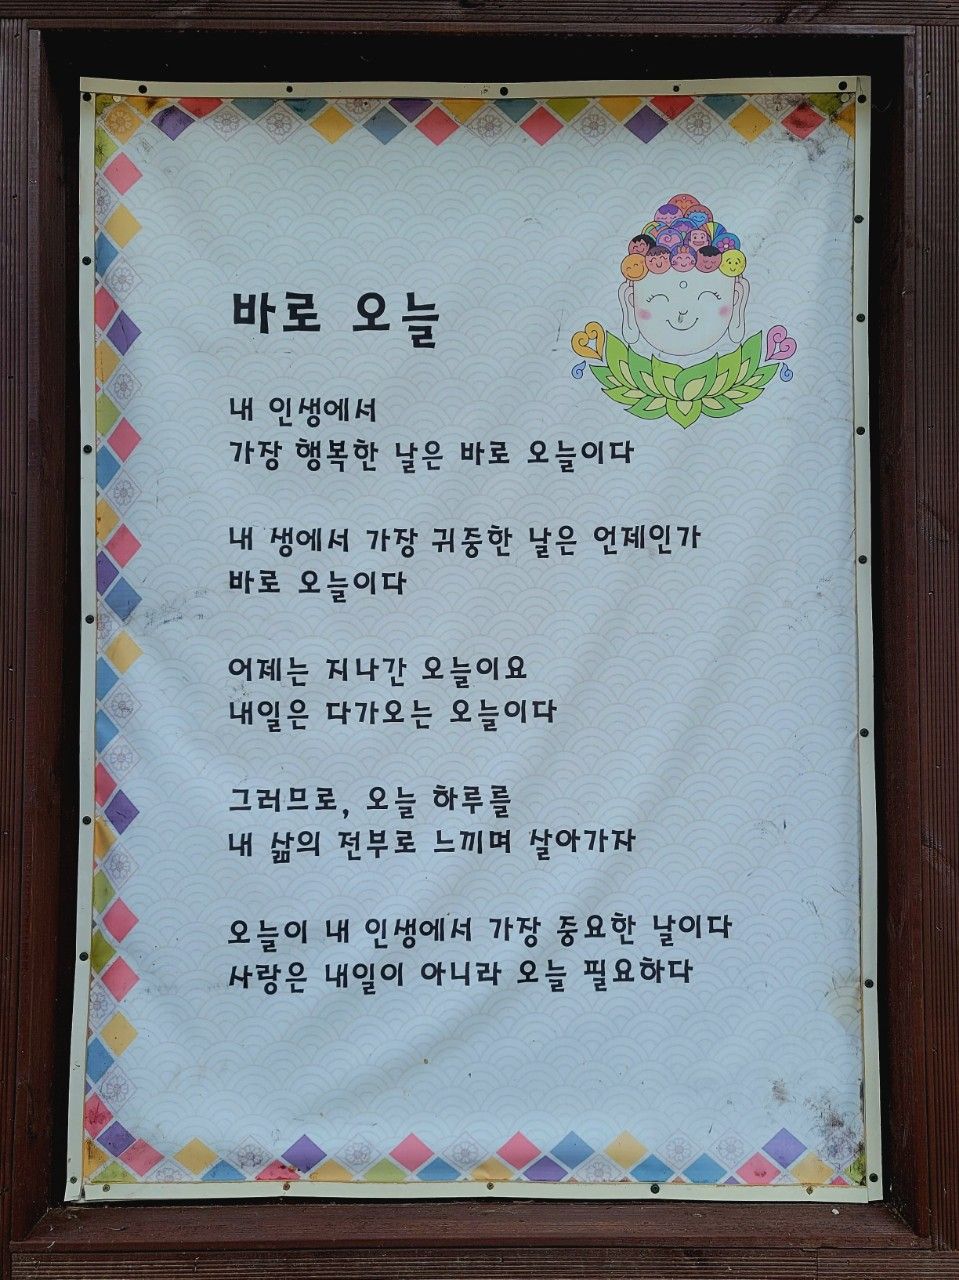 바로 오늘
내 인생에서
가장 행복한 날은 바로 오늘이다
내 생에서 가장 귀중한 날은 언제인가
바로 오늘이다
어제는 지나간 오늘이요
내일은 다가오는 오늘이다
그러므로, 오늘 하루를
내 삶의 전부로 느끼며 살아가자
오늘이 내 인생에서 가장 중요한 날이다
사랑은 내일이 아니라 오늘 필요하다